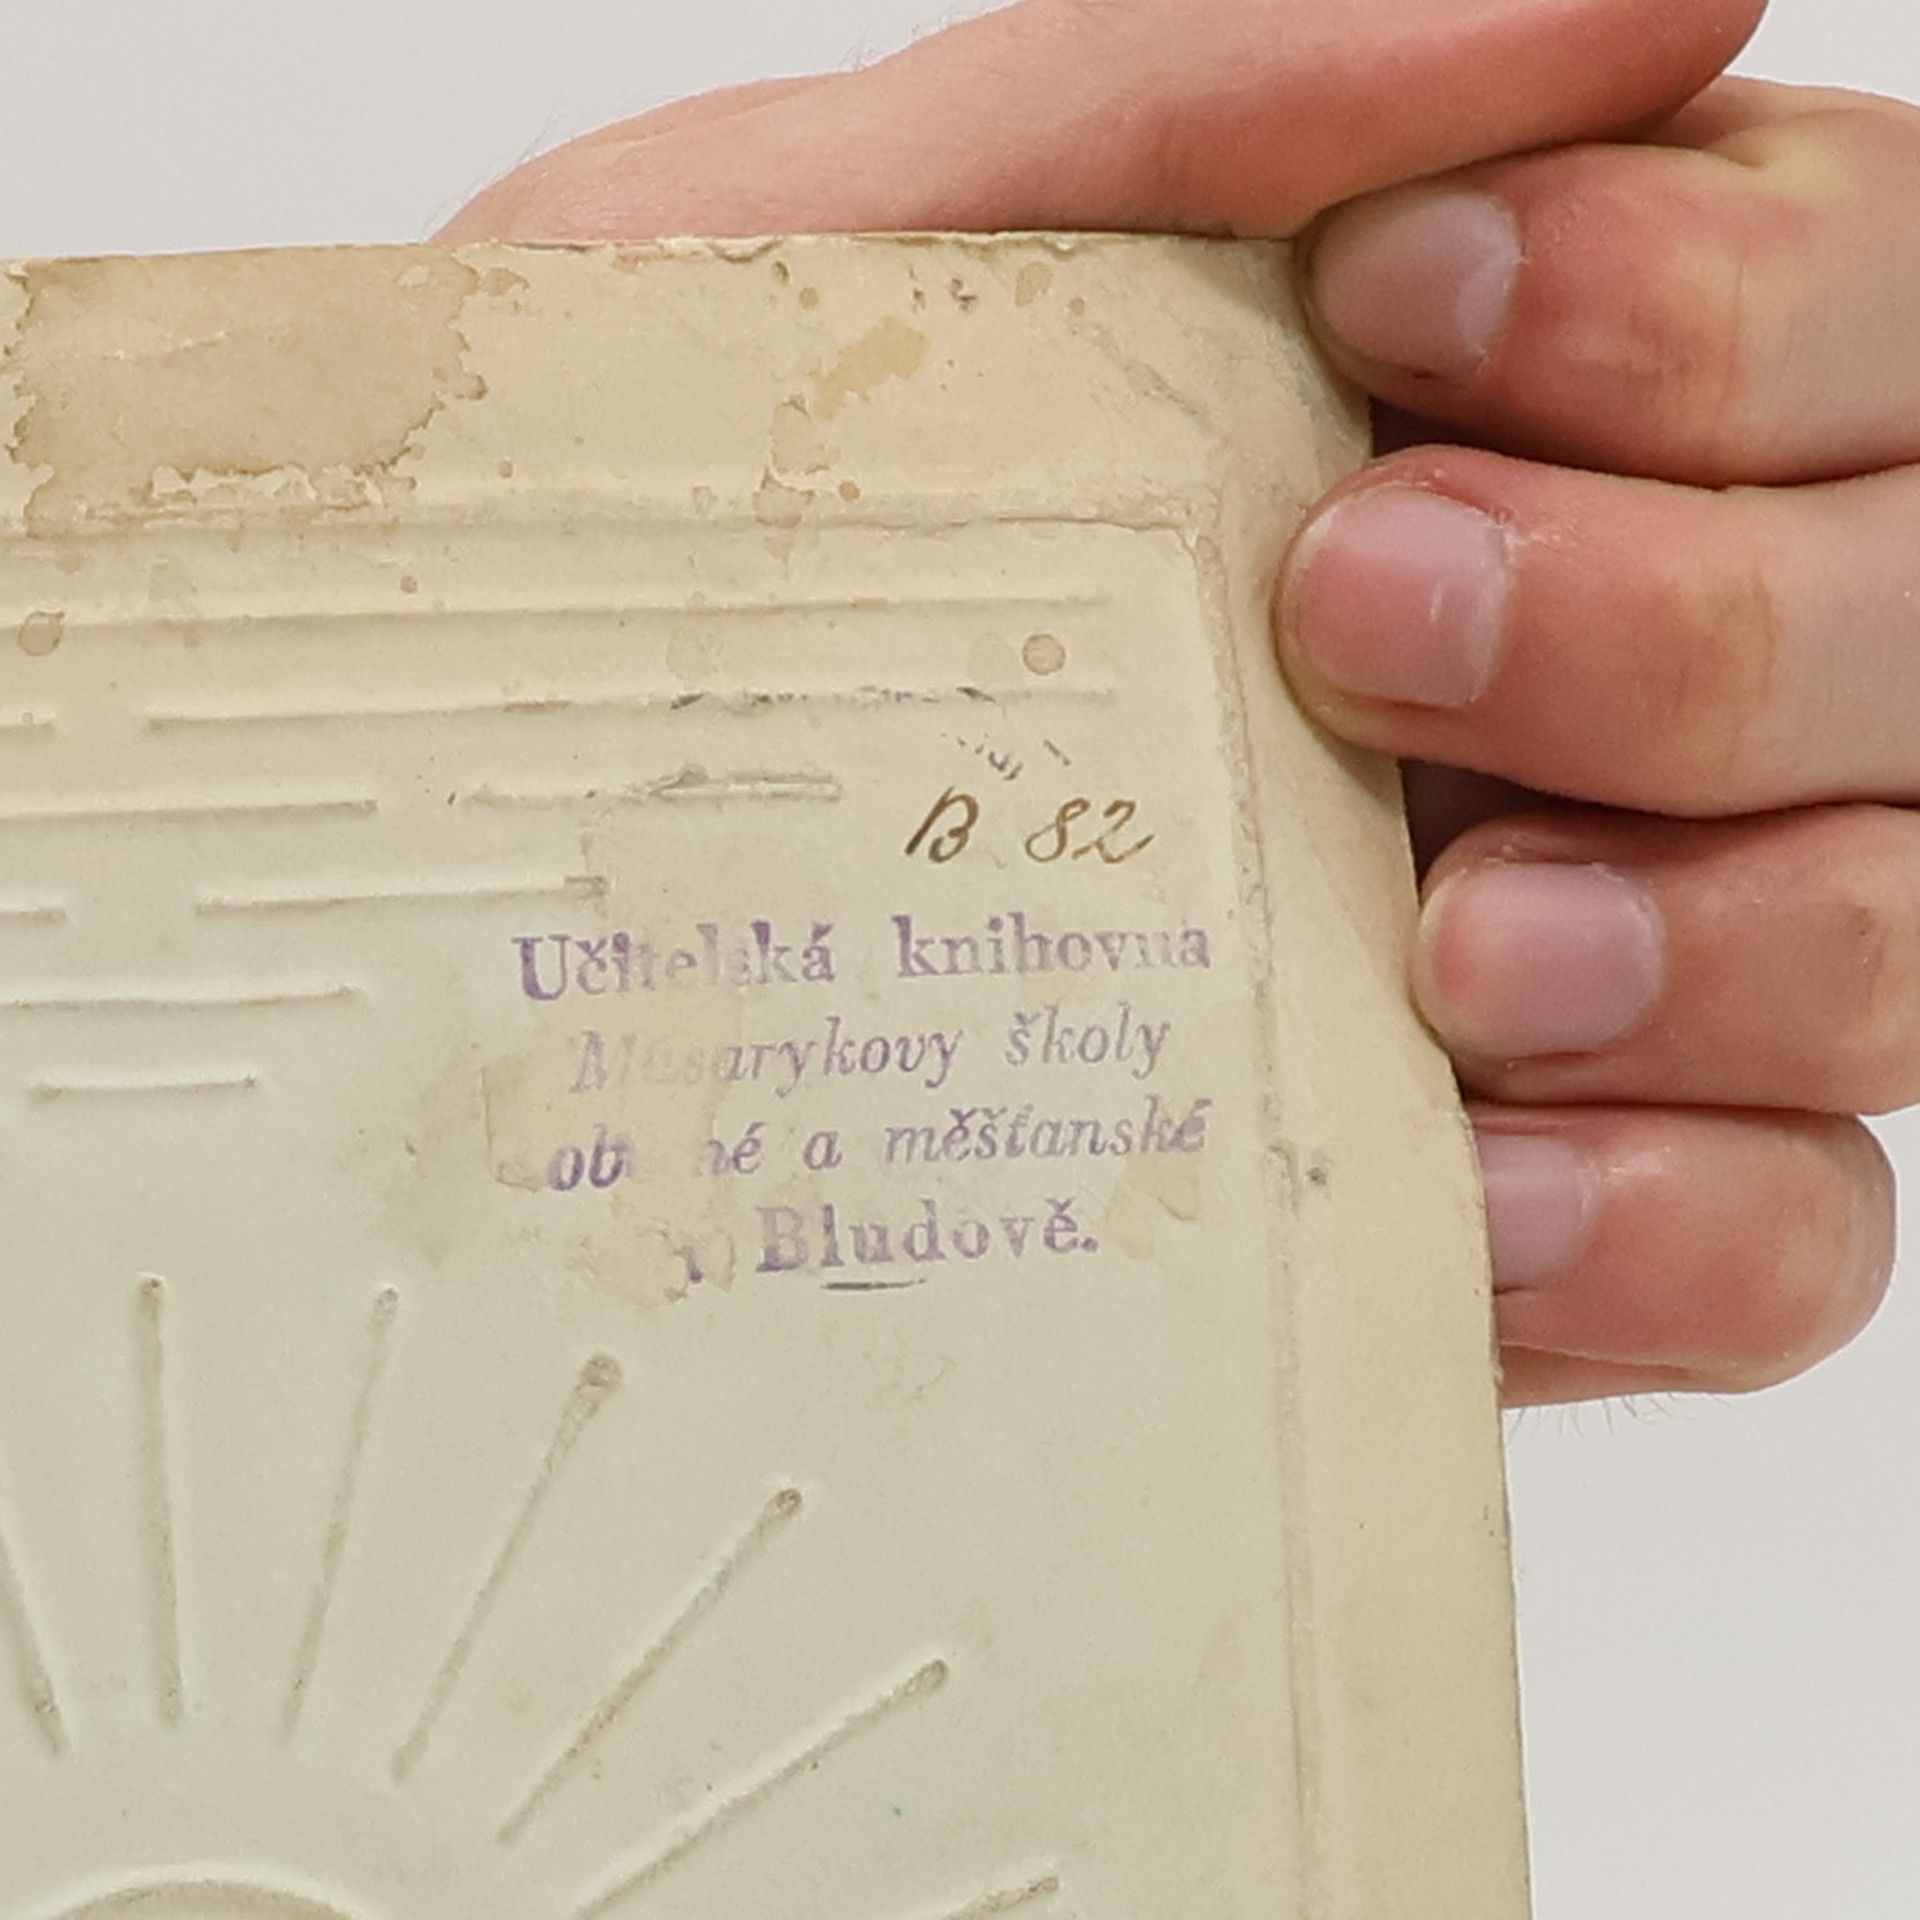 B 82
Učitelská knihovna
Masarykovy školy
a měšťanské
Bludově.